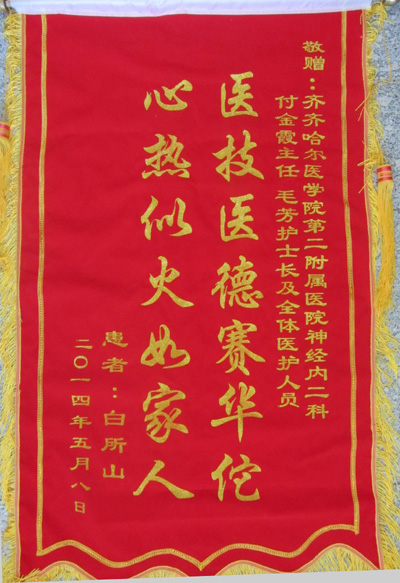 敬赠：齐齐哈尔医学院第二附属医院神经内二科
付金霞主任 毛芳护士长及全体医护人员
医技医德赛华佗
心热似火如家人
患者：白所山
二〇一四年五月八日